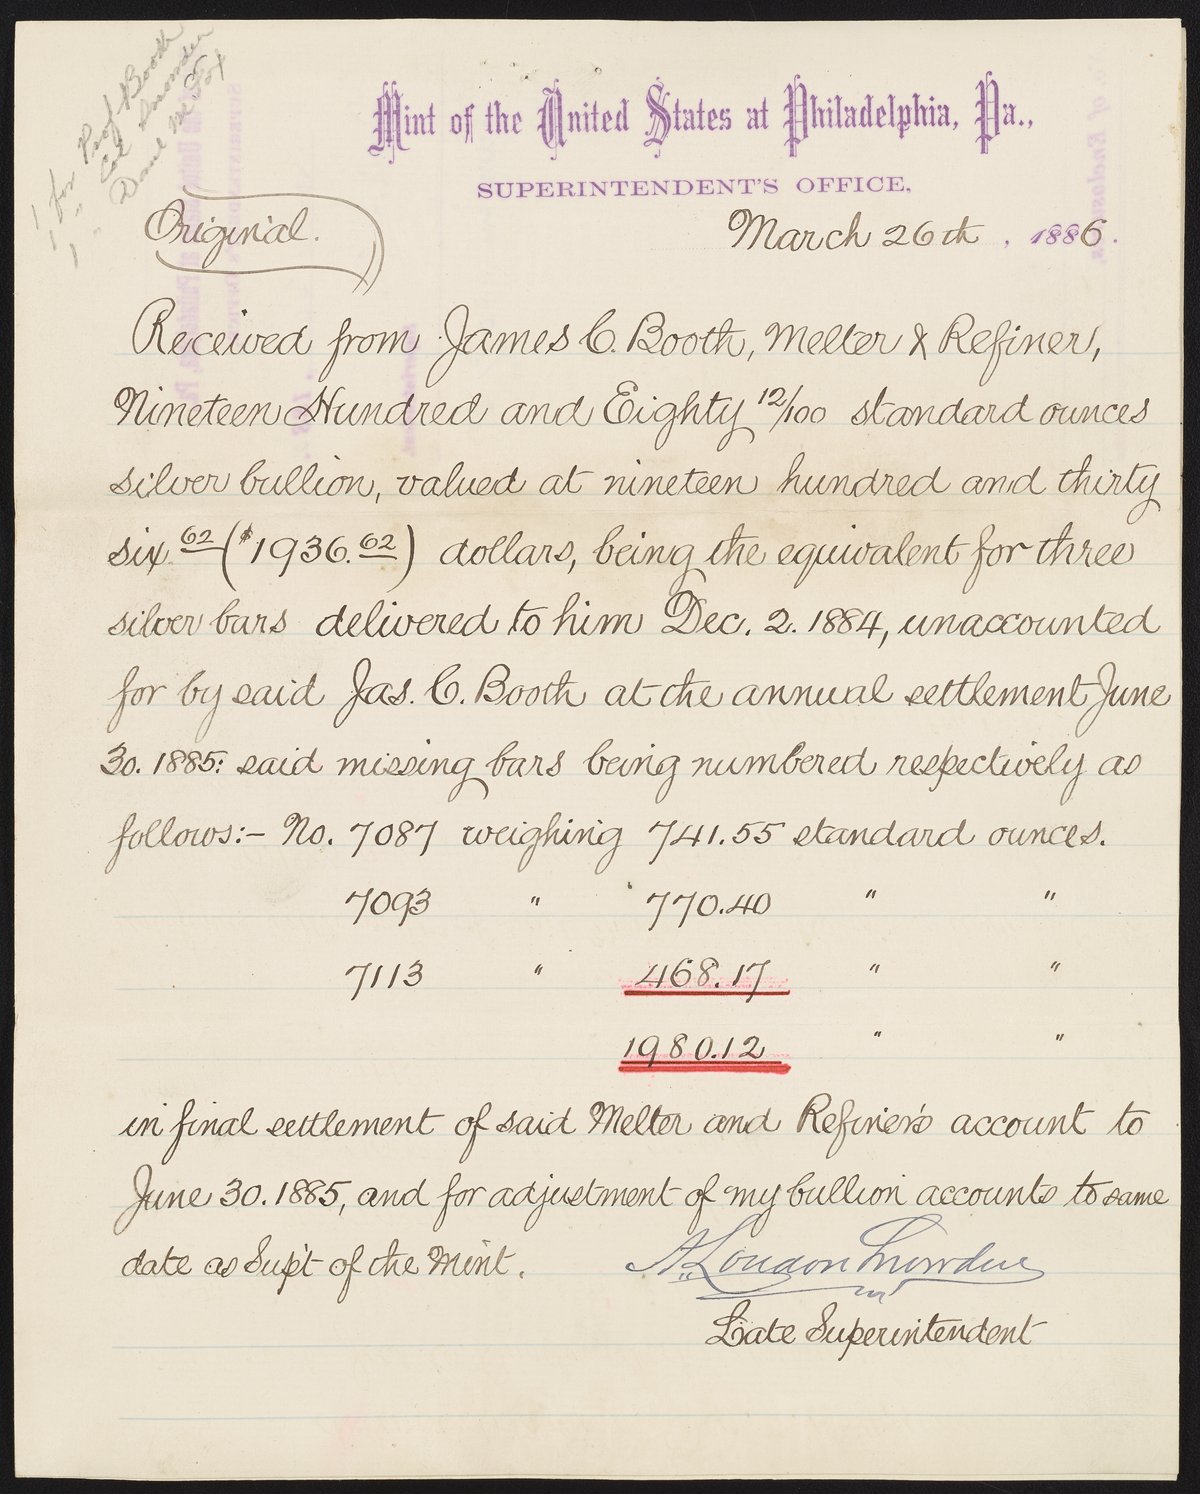 1 for Prof Booth
1 " Col Snowden
1 " Danl M Fox
Mint of the United States at Philadelphia, Pa.,
SUPERINTENDENT'S OFFICE,
Original.
March 26th, 1886.
Received from James C. Booth, Melter & Refiner,
Nineteen Hundred and Eighty 12/100 standard ounces
silver bullion, valued at nineteen hundred and thirty
six 62 ($1936.62) dollars, being the equivalent for three
silver bars delivered to him Dec. 2. 1884, unaccounted
for by said Jas. C. Booth at the annual settlement June
30. 1885: said missing bars being numbered respectively as
follows:- No. 7087 weighing 741.55 standard ounces.
7093 " 770.40 " "
7113 " 468.17 " "
1980.12 " "
in final settlement of said Melter and Refiner's account to
June 30. 1885, and for adjustment of my bullion accounts to same
date as Sup't of the Mint.
A. Loudon Snowden
Late Superintendent